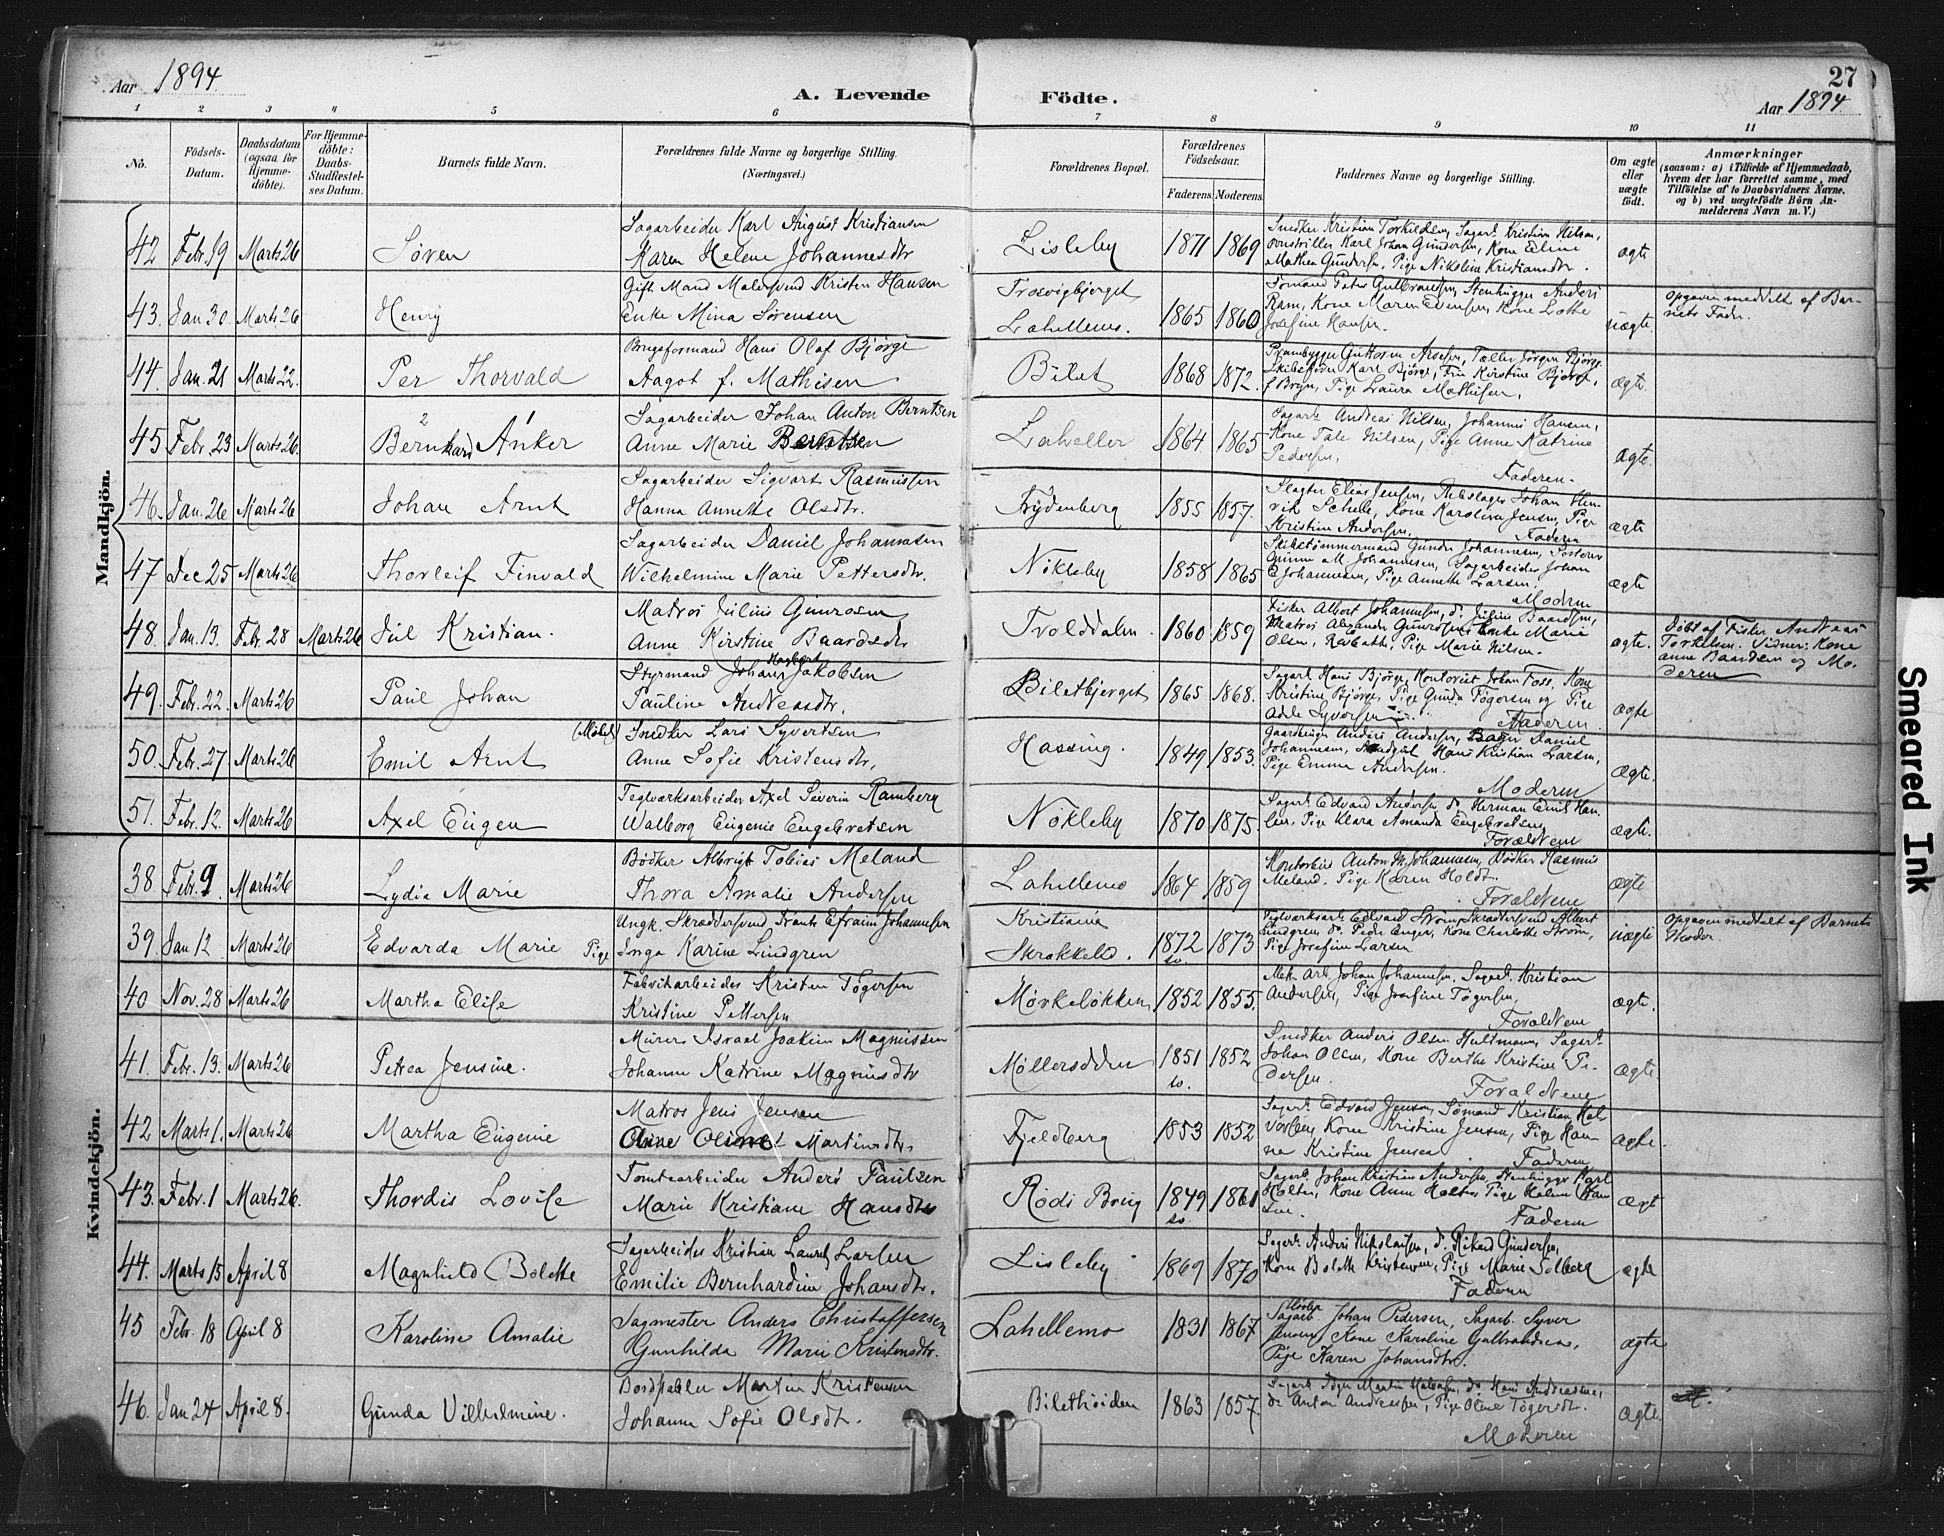 Aar 1894.
A. Levende Födte.
27
Aar 1894
1 2 3 4 5 6 7 8 9 10 11
No.
Födsels-Datum.
Daabsdatum (ogsaa for Hjemme-döbte).
For Hjemme-döbte: Daabs-Stadfæstel-ses Datum.
Barnets fulde Navn.
Forældrenes fulde Navne og borgerlige Stilling. (Næringsvei.)
Forældrenes Bopæl.
Forældrenes Födselsaar.
Faderens Moderens
Faddernes Navne og borgerlige Stilling.
Om ægte eller uægte födt.
Anmærkninger
(saasom: a) i Tilfælde af Hjemmedaab, hvem der har forrettet samme, med Tilföielse af to Daabsvidners Navne, og b) ved uægtefödte Börn An-melderens Navn m. V.)
Mandkjön.
42 Febr. 19 Marts 26 Søren
Sagarbeider Karl August Kristiansen
Karen Helene Johannesdtr
Lisleby 1871 1869
Snedker Kristian Torkildsen, Sagarb. Kristian Nilsen,
Karl Johan Gundersen, Kone Eline
Mathea Gundersen, Pige Nikoline Kristiansdtr.
ægte
43. Jan 30. Marts 26 Henry
Gift Mand Malersvend Kristen Hansen
Enke Mina Sørensen
Trosvigbjerget
Lahellemo. 1865 1860
Sømand Peter Gulbrandsen, Stenhugger Anders
Ram, Kone Maren Evensen, Kone Lotte
Josefine Hansen.
uægte.
Opgaven meddelt af Bar-
nets Fader.
44. Jan. 21 Marts 22. Per Thorvald
Brugsformand Hans Olaf Bjørge
Aagot f. Mathisen
Bilet 1868 1872.
Prambygger Guttorm Arnesen, Tæller Jørgen Bjørge
Karl Bjørge, Fru Kirstine Bjørge,
f. Bryn, Pige Laura Mathisen.
ægte.
45 Febr. 23 Marts 26. Bernhard Anker
Sagarbeider Johan Anton Berntsen
Anne Marie Berntsen
Laheller 1864 1865
Sagarb. Andreas Nilsen, Johannes Hansen,
Kone Tale Nilsen, Pige Anne Katrine
Pedersen.
Faderen.
ægte.
46. Jan. 26 Marts 26 Johan Arnt
Sagarbeider Sigvart Rasmussen
Hanna Annette Olsdtr.
Frydenberg 1855 1857.
Slagter Elias Jensen, Rebslager Johan Hen-
rik Scheele, Kone Karoline Jensen, Pige
Kristine Andersen.
Faderen
ægte
47 Dec 25 Marts 26 Thorleif Finvald
Sagarbeider Daniel Johannesen
Wilhelmine Marie Pettersdtr.
Nökleby 1858 1865
Skibstømmermand Gunder Johannesen,
M. Johannesen, Sagarbeider Johan
E. Johannesen, Pige Annette Larsen.
Moderen
ægte
48. Jan. 13. Febr. 28 Marts 26 Jul Kristian.
Matros Julius Gunrosen
Anne Kirstine Baardsdtr
Trolddalen. 1860 1859
Fisker Albert Johannesen, do. Julius Baardsen,
Matros Alexander Gunrosen, Enke Marie
Olsen, Rødbakke, Pige Marie Nilsen.
ægte.
Døbt af Fisker Andreas
Torkelsen. Vidner: Kone
Anne Baardsen og Mo-
deren
49. Febr. 22. Marts 26 Paul Johan
Styrmand Johan Jakobsen
Pauline Andreasdtr.
Biletbjerget 1865 1868.
Sagarb. Hans Bjørge, Kontorist Johan Foss, Kone
Kristine Bjørge, Pige Gunda Tøgersen og Pige
Adele Syversen
Faderen
ægte
50. Febr. 27. Marts 26 Emil Arnt
(Møbel) Snedker Lars Syvertsen
Anne Sofie Kristensdtr,
Hassing. 1849 1853.
Gaardbruger Anders Andersen, Bager Daniel
Johannesen, Hans Kristian Larsen,
Pige Emma Andersen.
Moderen
ægte.
51. Febr. 12. Marts 26 Axel Eugen
Teglværksarbeider Axel Severin Ramberg
Walborg Eugenie Engebretsen
Nökleby 1870 1875.
Sagarb. Edvard Andersen, do. Herman Emil Han-
sen, Pige Klara Amanda Engebretsen
Forældrene
ægte.
Kvindekjön.
38. Febr. 9 Marts 26 Lydia Marie
Bødker Albrigt Tobias Meland
Thora Amalie Andersen
Lahellemo 1864 1859
Kontorbud Anton M. Johannesen, Bødker Rasmus
Meland. Pige Karen Holdt.
Forældrene
ægte
39. Jan 12. Marts 26 Edvarda Marie
Ungk. Skræddersvend Frants Efraim Johannesen
Pige Inga Karine Lindgren
Kristiania
Skrokkelö. 1872 1873
sv.
Teglværksarb. Edvard Strøm, Skræddersvend Albert
Lindgren, do. Peder Enger, Kone Charlotte Strøm,
Pige Josefine Larsen
uægte
Opgaven meddelt af Barnets
Moder.
40 Nov. 28 Marts 26 Martha Elise
Fabrikarbeider Kristen Tøgersen
Kristine Pettersen
Mørkeløkken 1852 1855.
Mek. Arb. Johan Johannesen. Sagarb. Kristian
Andersen, Pige Josefine Tøgersen.
Forældrene
ægte.
41. Febr. 13. Marts 26 Petrea Jensine.
Murer Israel Joakim Magnussen
Johanne Katrine Magnusdtr
Møllerodden 1851 1852
sv.
Snedker Anders Olsen Hultmann, Sagarb.
Johan Olsen, Kone Berthe Kristine Pe-
dersen.
Forældrene
ægte.
42 Marts 1. Marts 26 Martha Eugenie
Matros Jens Jensen
Anne Oline Martinsdtr.
Fjeldberg 1853 1852
Sagarb. Edvard Jensen, Sømand Kristian Hal-
vorsen, Kone Kristine Jensen, Pige Han-
na Kristine Jensen
Faderen
ægte.
43. Febr. 1 Marts 26. Thordis Lovise
Tomtearbeider Anders Paulsen
Marie Kristiane Hansdtr
Röds Brug 1849 1861
sv.
Sagarb. Johan Kristian Andersen, Stenhugger Karl
Holter, Kone Anne Holter, Pige Helene Han-
sen.
Faderen
ægt
44. Marts 15 April 8 Magnhild Bolette
Sagarbeider Kristian Laurits Larsen
Emilie Bernhardine Johansdtr.
Lisleby. 1869 1870
Sagarb. Anders Nikolaisen, do. Rikard Gundersen,
Kone Bolette Kristensen, Pige Marie Solberg
Faderen
ægte
45 Febr. 18 April 8 Karoline Amalie
Sagmester Anders Christoffersen
Gunhilda Marie Kristensdtr.
Lahellemo 1831 1867
Sagarb. Johan Pedersen, Sagarb. Syver
Jensen, Kone Karoline Gulbrandsen,
Pige Karen Johansdtr.
ægte
46. Jan 24 April 8. Gunda Vilhelmine.
Bordstabler Martin Kristensen
Johanne Sofie Olsdt.
Bilethöiden 1863 1857.
Sagarb. Martin Halvorsen, do. Hans Andreasen,
do Anton Andreassen, Pige Oline Tøgersdt.
Moderen
ægte.
Smeared Ink